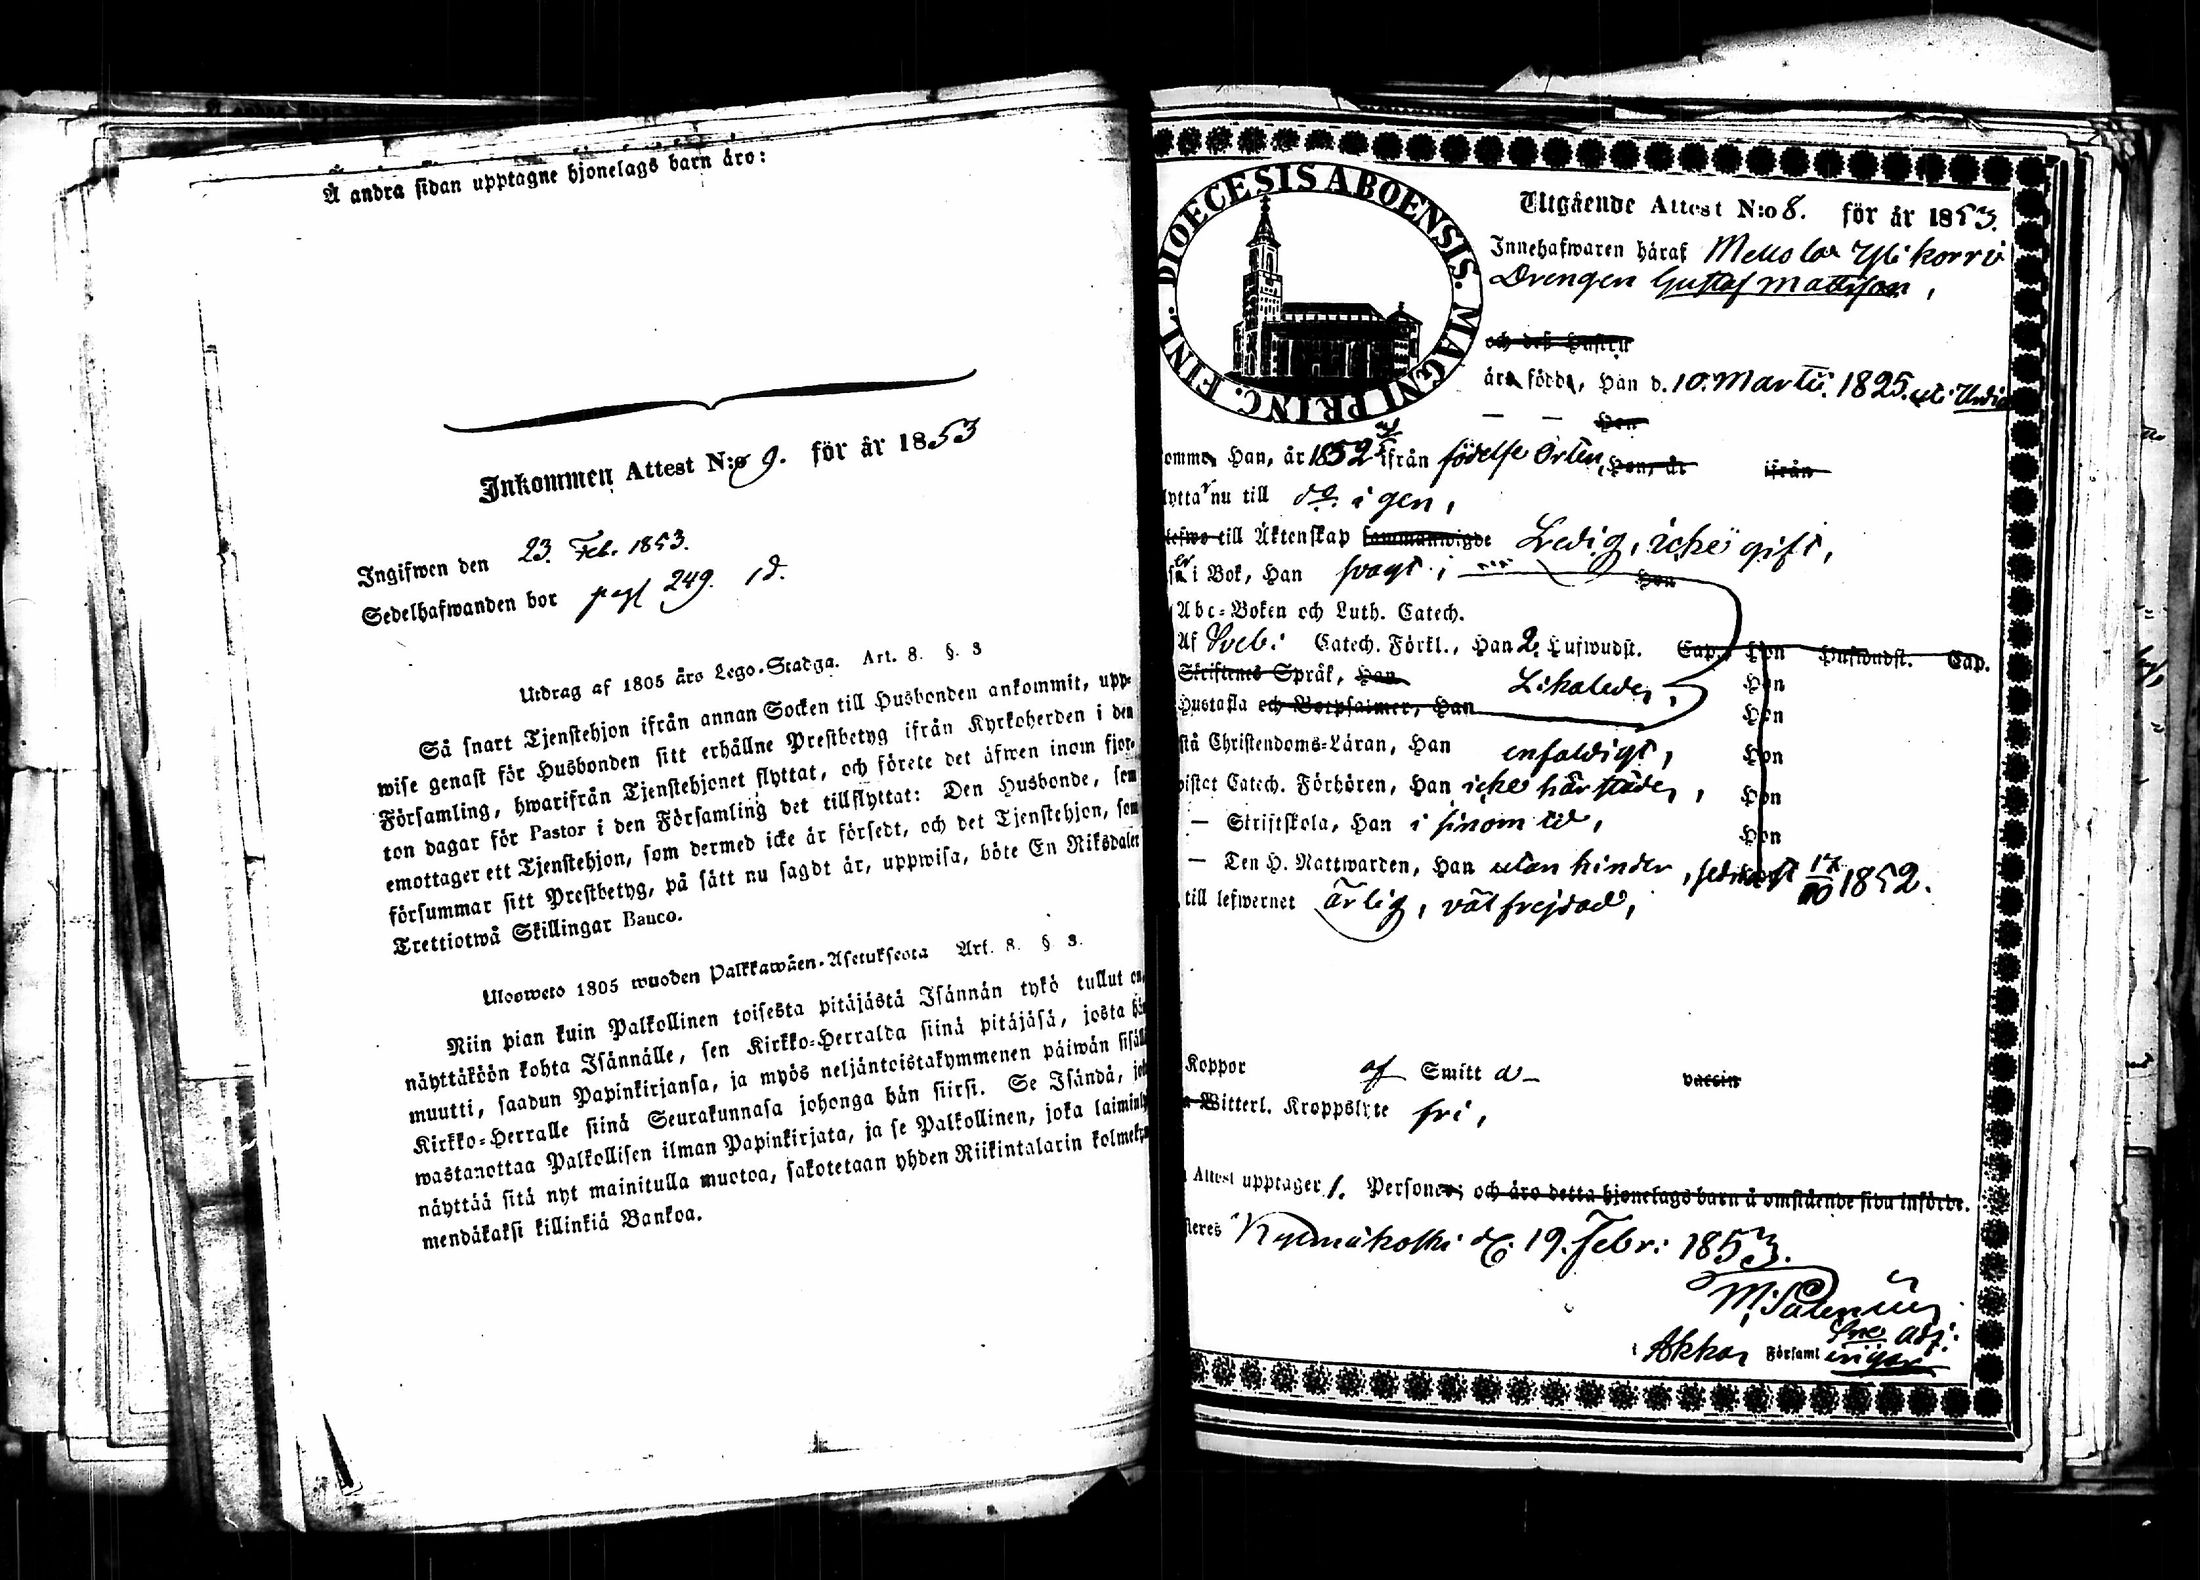 Å andra sidan upptagne hjonelags barn äro:
Inkommen Attest N:o 9. för år 1853
Ingifwen den 23. Feb. 1853.
Sedelhafwanden bor pag 249.
Utdrag af 1805 års Lego-Stadga. Art. 8. §. 3
Så snart Tjenstehjon ifrån annan Socken till Husbonden ankommit, upp-
wise genast för Husbonden sitt erhållne Prestbetyg ifrån Kyrkoherden i den
Församling, hwarifrån Tjenstehjonet flyttat, och förete det äfwen inom fjor-
ton dagar för Pastor i den Församling det tillflyttat: Den Husbonde, som
emottager ett Tjenstehjon, som dermed icke är försedt, och det Tjenstehjon, som
försummar sitt Prestbetyg, på sätt nu sagdt är, uppwisa, böte En Riksdaler
Trettiotwå Skillingar Banco.
Ulosweto 1805 wuoden Palkkawäen-Asetuksesta Art. 8. § 3.
Niin pian kuin Palkollinen toisesta pitäjästä Isännän tykö tullut on,
näyttäköön kohta Isännälle, sen Kirkko-Herralda siinä pitäjäsä, josta hän
muutti, saadun Papinkirjansa, ja myös neljäntoistakymmenen päiwän sisällä
Kirkko-Herralle siinä Seurakunnasa johonga hän siirsi. Se Isändä, joka
wastanottaa Palkollisen ilman Papinkirjata, ja se Palkollinen, joka laiminlyö
näyttää sitä nyt mainitulla muotoa, sakotetaan yhden Riikintalarin kolmekym-
mendäkaksi killinkiä Bankoa.
FINL. DIOECESIS ABOENSIS. MAGNI PRINC.
Utgående Attest N:o 8. för år 1853.
Innehafwaren häraf Mellola Yli korri
Drengen Gustaf Mattsson,
och dess Hustru
äro födde, Han d. 10. Martii. 1825.
Hon
komme, Han, år 1852 ifrån födelse Orten, Hon, år ifrån
flytta nu till do igen,
lefwe till Äktenskap sammanwigde Ledig, icke gift,
i Bok, Han svagt; Hon
Abc-Boken och Luth. Catech.
Af Sveb: Catech. Förkl., Han 2. Hufwudst. Cap., Hon Hufwudst. Cap.
Skriftenes Språk, Han Likaledes, Hon
Hustafla och Botpsalmer, Han Hon
Christendoms-Läran, Han enfaldigt, Hon
Catech. Förhören, Han icke härstädes, Hon
— Skriftskola, Han i sinom tid, Hon
— Den H. Nattwarden, Han utan hinder, sednast 17/10 1852.
till lefwernet Ärlig, välfrejdad,
Koppor af Smittad – vaccin
Witterl. Kroppslyte fri,
Attest upptager 1. Personer; och äro detta hjonelags barn å omstående sida införde.
Kydmäkoski d. 19. Febr: 1853.
adj:
i Akkas Församlingar